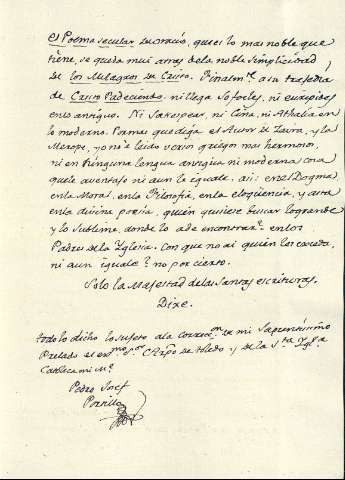 el Poema secular de Oracio, que es lo mas noble que
tiene, se queda mui atras de la noble Simplicidad
de los Milagros de Cristo. Finalmte a su tragedia
de Cristo Padeciendo. ni llega Sofocles, ni euripides
en lo antiguo. Ni Saxespear, ni Cina, ni Athalia en
lo moderno. Por mas que diga el Autor de Zaira, y la
Merope, yo no è leido verso griego mas hermoso,
ni en ninguna lengua antigua ni moderna cosa
que le aventaje ni aun le iguale. asi: en el Dogma
en la Moral. en la Filosofia, en la eloqüencia, y aun
en la divina poesia, quien quisiere buscar lo grande
y lo Sublime, donde lo à de encontrar? en los
Padres de la Yglesia. Con que no ai quien los exceda,
ni aun iguale? no por cierto.
Solo la Majestad de las Santas escrituras.
Dixe.
todo lo dicho lo sujeto a la Correccon de mi Sapientisimo
Prelado el exmo Sor Arzpo de Toledo y de la Sta Yglª
Catolica mi Me
Pedro Josef